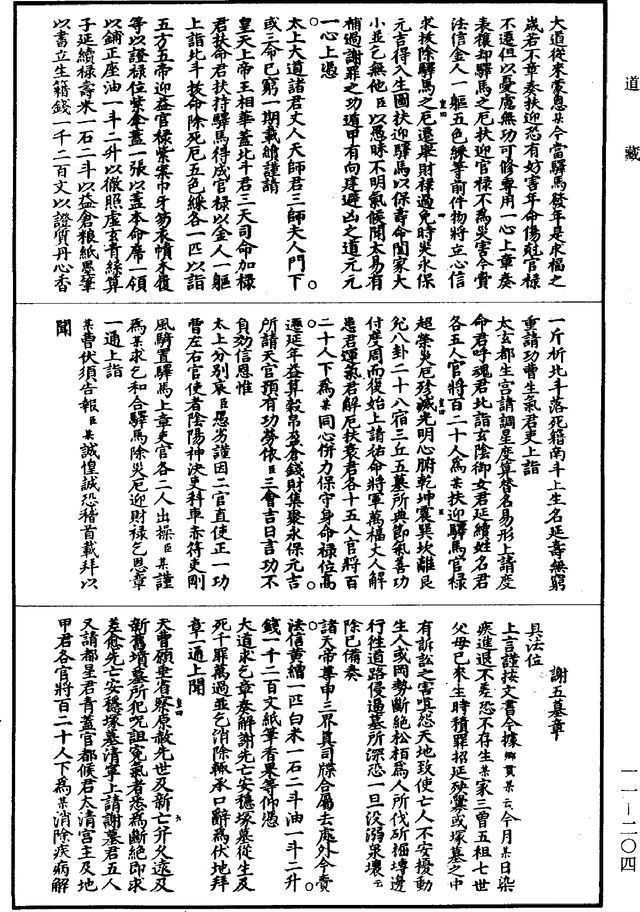 道藏
大道從來蒙恩某今當驛馬發年是求福之
歲若不章奏扶迎恐有妨害年命傷剋官祿
不遷但以憂慮無功可修專用一心上章奏
表攘却驛馬之厄扶迎官祿不為災害今賫
法信金人一軀五色綵等前件物將立心信
求拔除驛馬之厄遷舉財祿過免時災永保
元吉得入生圖扶迎驛馬以保壽命闔家大
小並乞無他臣以愚昧不明氣候聞太易有
補過謝罪之功遁甲有向建避凶之道元元
一心上憑
太上大道諸君丈人天師君三師夫人門下
或三命已窮一期載續謹請
皇天上帝王相華蓋北斗君三天司命加祿
君扶命君扶持驛馬得成官祿以金人一軀
上詣北斗拔命除死厄五色綵各一匹以詣
五方五帝迎益官祿紫案巾牙笏衣幘木履
等以證祿位紫傘蓋一張以蓋本命席一領
以鋪正座油一斗二升以徹照虛玄青絲算
子延續祿壽米一石二斗以益倉粮紙墨筆
以書立生籍錢一千二百文以證質丹心香
一斤析北斗落死籍南斗上生名延壽無窮
重請功曹生氣君吏上詣
太玄都生宮請調星度算替名易形上請度
命君呼魂君北詣玄陰御女君延續姓名君
各五人官將百二十人為某扶迎驛馬官祿
超榮災厄殄滅光明心腑乾坤震巽坎離艮
兌八卦二十八宿三丘五墓所典節氣善功
付度周而復始上請祐命將軍萬福丈人解
患君運氣君解厄扶衰君各十五人官將百
二十人下為某同心併力保守身命祿位高
遷延年益算穀帛盈倉錢財集聚永保元吉
所請天官預有功勞依臣三會吉日言功不
負効信恩惟
太上分別哀臣愚劣謹因二官直使正一功
曹左右官使者陰陽神決吏科車赤符吏剛
風騎置驛馬上章吏官各二人出操臣某謹
為某求乞和合驛馬除災厄迎財祿乞恩章
一通上詣
某曹伏須告報臣某誠惶誠恐稽首載拜以
聞
謝五墓章
具法位
上言謹按文書今據鄉貫某云今月某日染
疾進退不差恐不存生某家三曾五祖七世
父母已來生時積罪招延殃釁或塚墓之中
有訴訟之害嗔怨天地致使亡人不安擾動
生人或岡勢斷絕松栢為人所伐斫掘塼邊
行徃道路侵逼墓所深恐一旦没溺泉壤云
除已備奏
諸天帝尊申三界真司牒合屬去處外今賫
法信黄繒一匹白米一石二斗油一斗二升
錢一千二百文紙筆香果等仰憑
大道求乞章奏解謝先亡安穩塚墓從生及
死千罪萬過並乞消除輙承口辭為伏地拜
章一通上聞
天曹願垂省察原赦先世及新亡芥久遠及
新舊墳墓所犯呪詛寃氣者悉為斷絕即求
差愈先亡安穩塚墓清寧上請謝墓君五人
又請都星君青蓋官都候君太清宮主及地
甲君各官將百二十人下為某消除疾病解
一一－二〇四